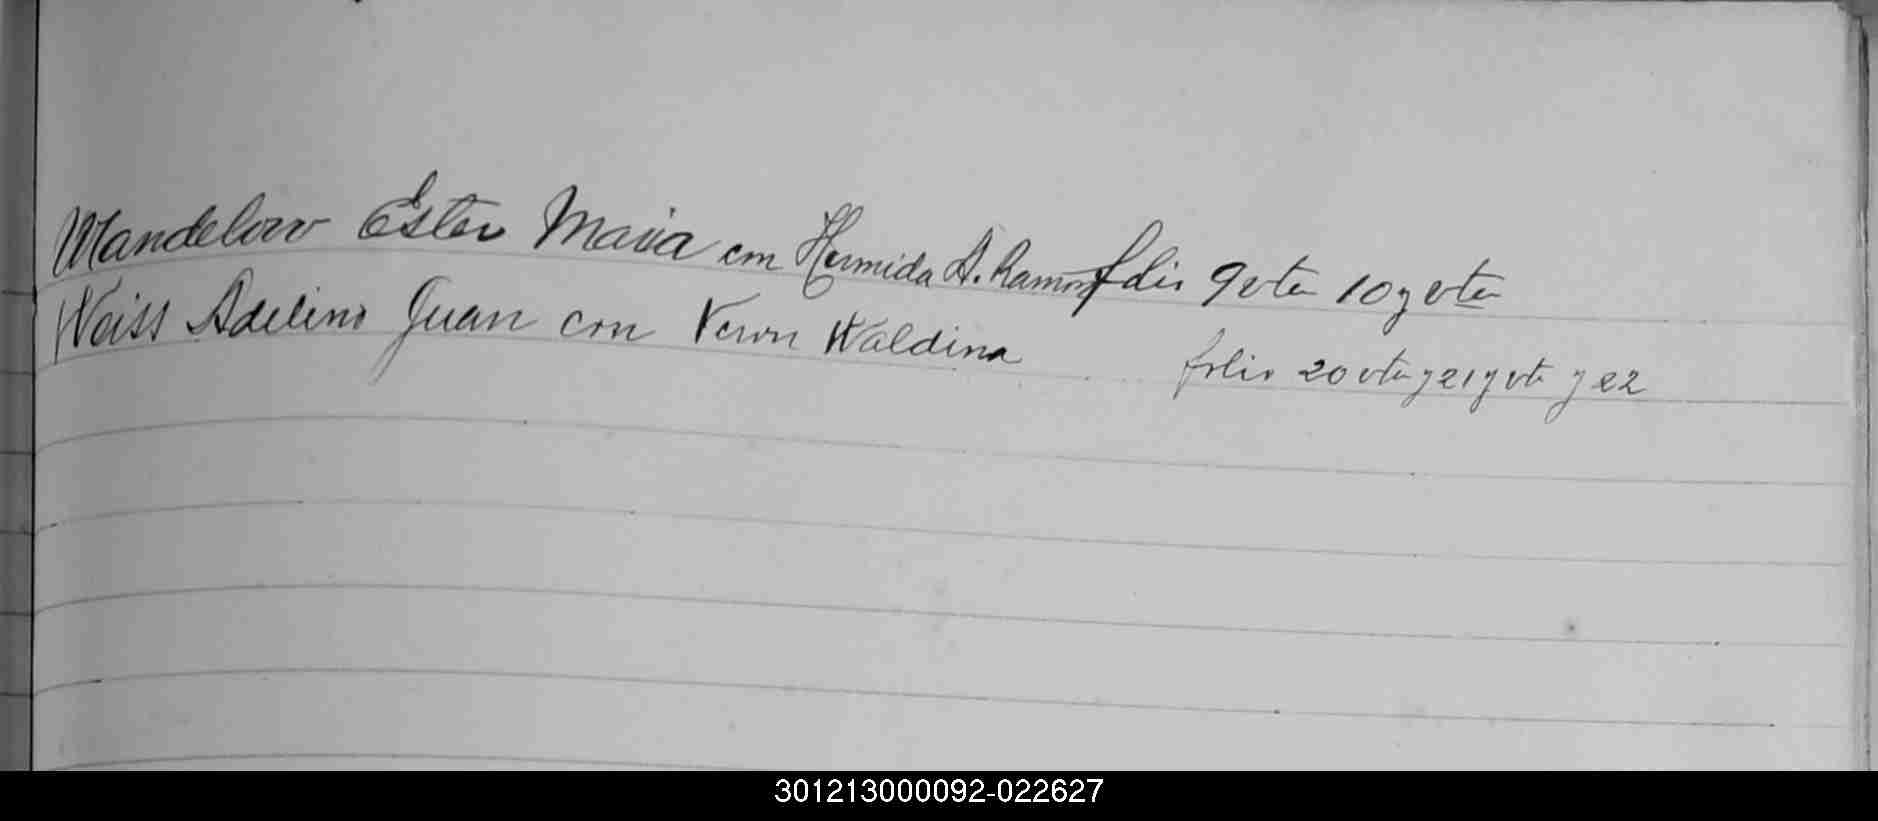 Wandelow Ester Maria con Hermida A. Ramon folio 9 vta 10 y vta
Weiss Adelino Juan con Veron Waldina folio 20 vta y 21 y vta y 22
301213000092-022627